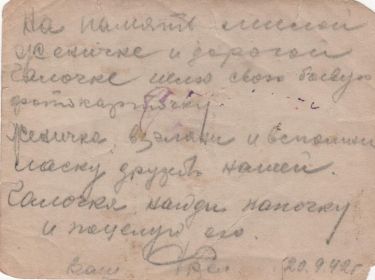 На память милой
Женичке и дорогой
Галочке шлю свою боевую
фотокарточку.
Женичка взгляни и вспомни
ласку дружбы нашей.
Галочка найди папочку
и поцелуй его.
Ваш
20.9.42г.